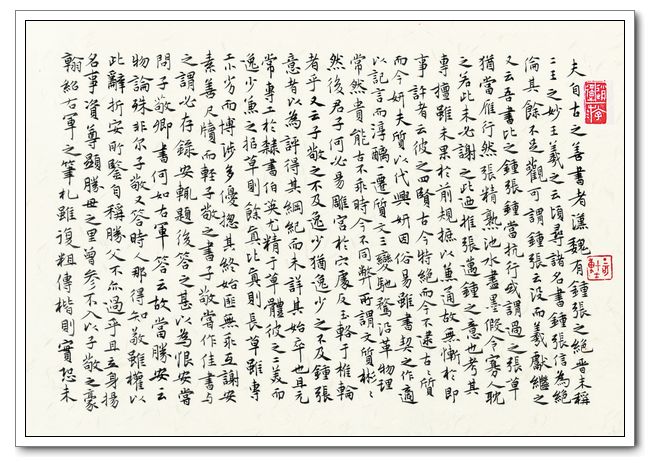 夫自古之善書者漢魏有鍾張之絕晉末稱
二王之妙王羲之云頃尋諸名書鍾張信為絕
倫其餘不足觀可謂鍾張云沒而羲獻繼之
又云吾書比之鍾張鍾當抗行或謂過之張草
猶當雁行然張精熟池水盡墨假令寡人耽
之若此未必謝之此乃推張邁鍾之意也考其
專擅雖未果於前規摭以兼通故無慚於即
事評者云彼之四賢古今特絕而今不逮古〻質
而今妍夫質以代興妍因俗易雖書契之作適
以記言而淳醨一遷質文三變馳騖沿革物理
常然貴能古不乖時今不同弊所謂文質彬〻
然後君子何必易雕宮於穴處反玉輅於椎輪
者乎又云子敬之不及逸少猶逸少之不及鍾張
意者以為評得其綱紀而未詳其始卒也且元
常專工於隸書伯英尤精于草體彼之二美而
逸少兼之擬草則餘真比真則長草雖專
工小劣而博涉多優摠其終始匪無乖互謝安
素善尺牘而輕子敬之書子敬嘗作佳書与
之謂必存錄安輒題後答之甚以為恨安嘗
問子敬卿書何如右軍答云故當勝安云
物論殊不尔子敬又答時人那得知敬雖權以
此辭折安所鑒自稱勝父不亦過乎且立身揚
名事資尊顯勝母之里曾參不入以子敬之豪
翰紹右軍之筆札雖復粗傳楷則實恐未